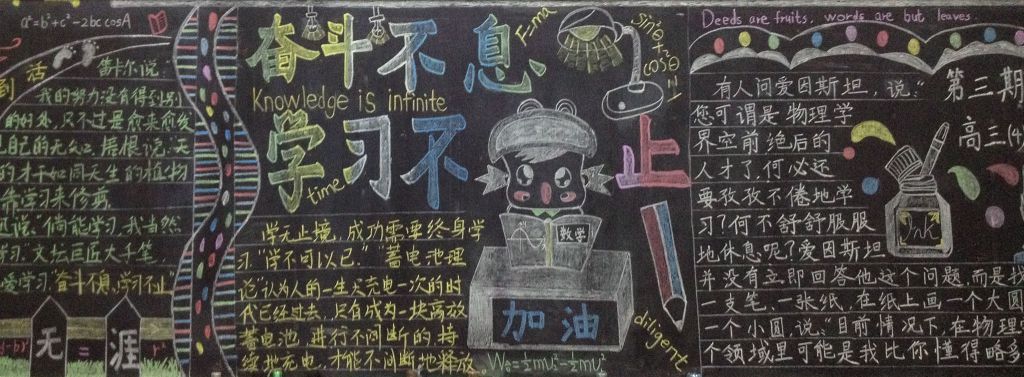 a²=b²+c²-2bc cosA
到 活
笛卡尔说:
我的努力没有得到别
的好处,只不过是愈来愈发
自己的无知,培根说:天
的才干如同天生的植物
靠学习来修剪
倘能学习,我当然
学习.文坛巨匠大手笔,
爱学习."奋斗不息,学习不止"
无 = 涯
奋斗不息
Knowledge is infinite
F=ma
sin²θ+cos²θ=1
学习不止
time
学无止境,成功需要终身学
习."学不可以已."蓄电池理
论认为人的一生只充电一次的时
代已经过去,只有成为一块高效
蓄电池,进行不间断的持
续地充电,才能不间断地释放。
数学
加油
diligent
W合=½mv²-½mv²
Deeds are fruits, words are but leaves
第三期
高三(4)
有人问爱因斯坦,说,"
您可谓是物理学
界空前绝后的
人才了,何必还
要孜孜不倦地学
习?何不舒舒服服
地休息呢?爱因斯坦
并没有立即回答他这个问题,而是找
一支笔、一张纸,在纸上画一个大圆
一个小圆,说:"目前情况下,在物理学
个领域里可能是我比你懂得略多
Ink